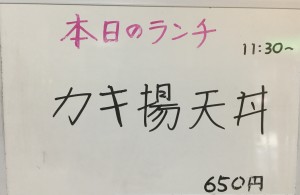 本日のランチ
11:30~
カキ揚天丼
650円